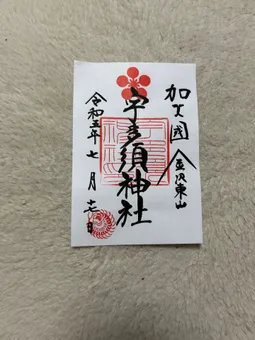 加賀國 金沢東山
宇多須神社
令和五年 七月 十七日